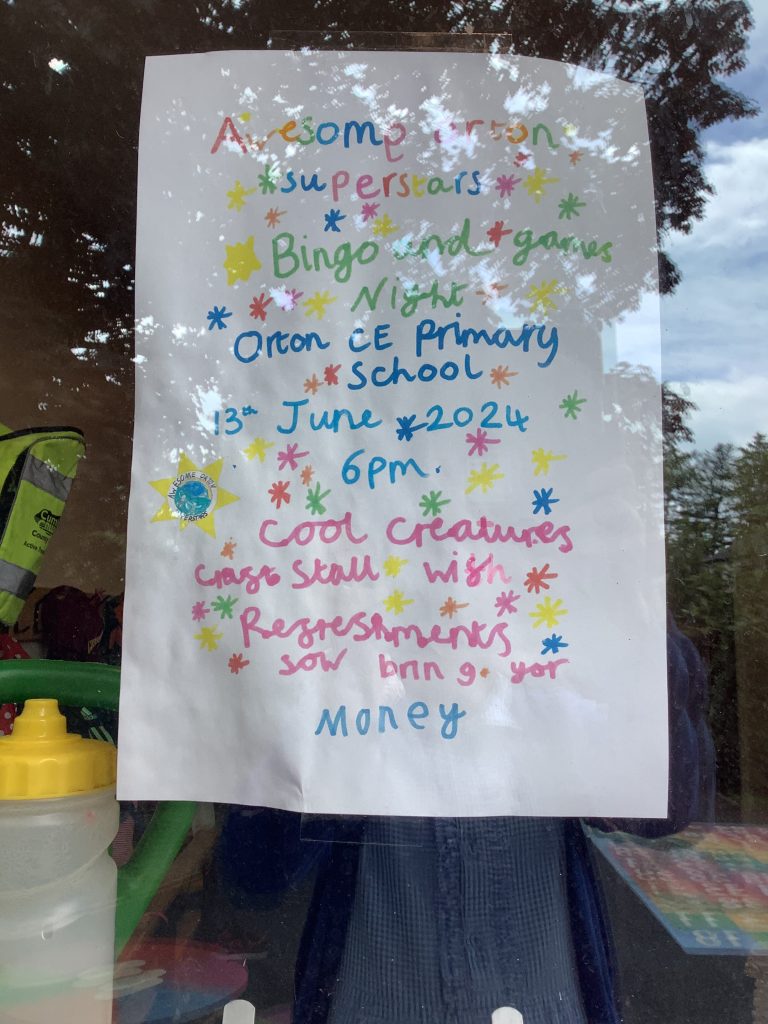 Awesome orton
superstars
Bingo and games
Night
Orton CE Primary
School
13th June 2024
6pm.
Cool creatures
Craft Stall with
Refreshments
sow bring yor
Money
AWESOME ORTON
SUPERSTARS